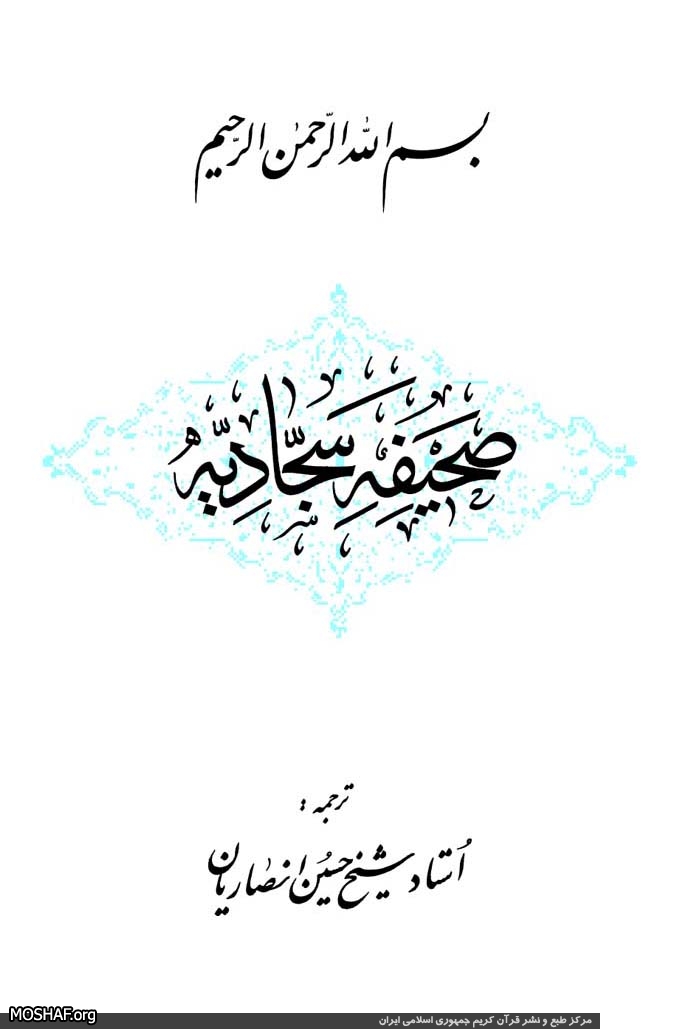 بسم الله الرّحمٰن الرّحیم
صَحیفَهِ سَجّادِیّه
ترجمه :
اُستاد شیخ حسین انصاریان
MOSHAF.org
مرکز طبع و نشر قرآن کریم جمهوری اسلامی ایران